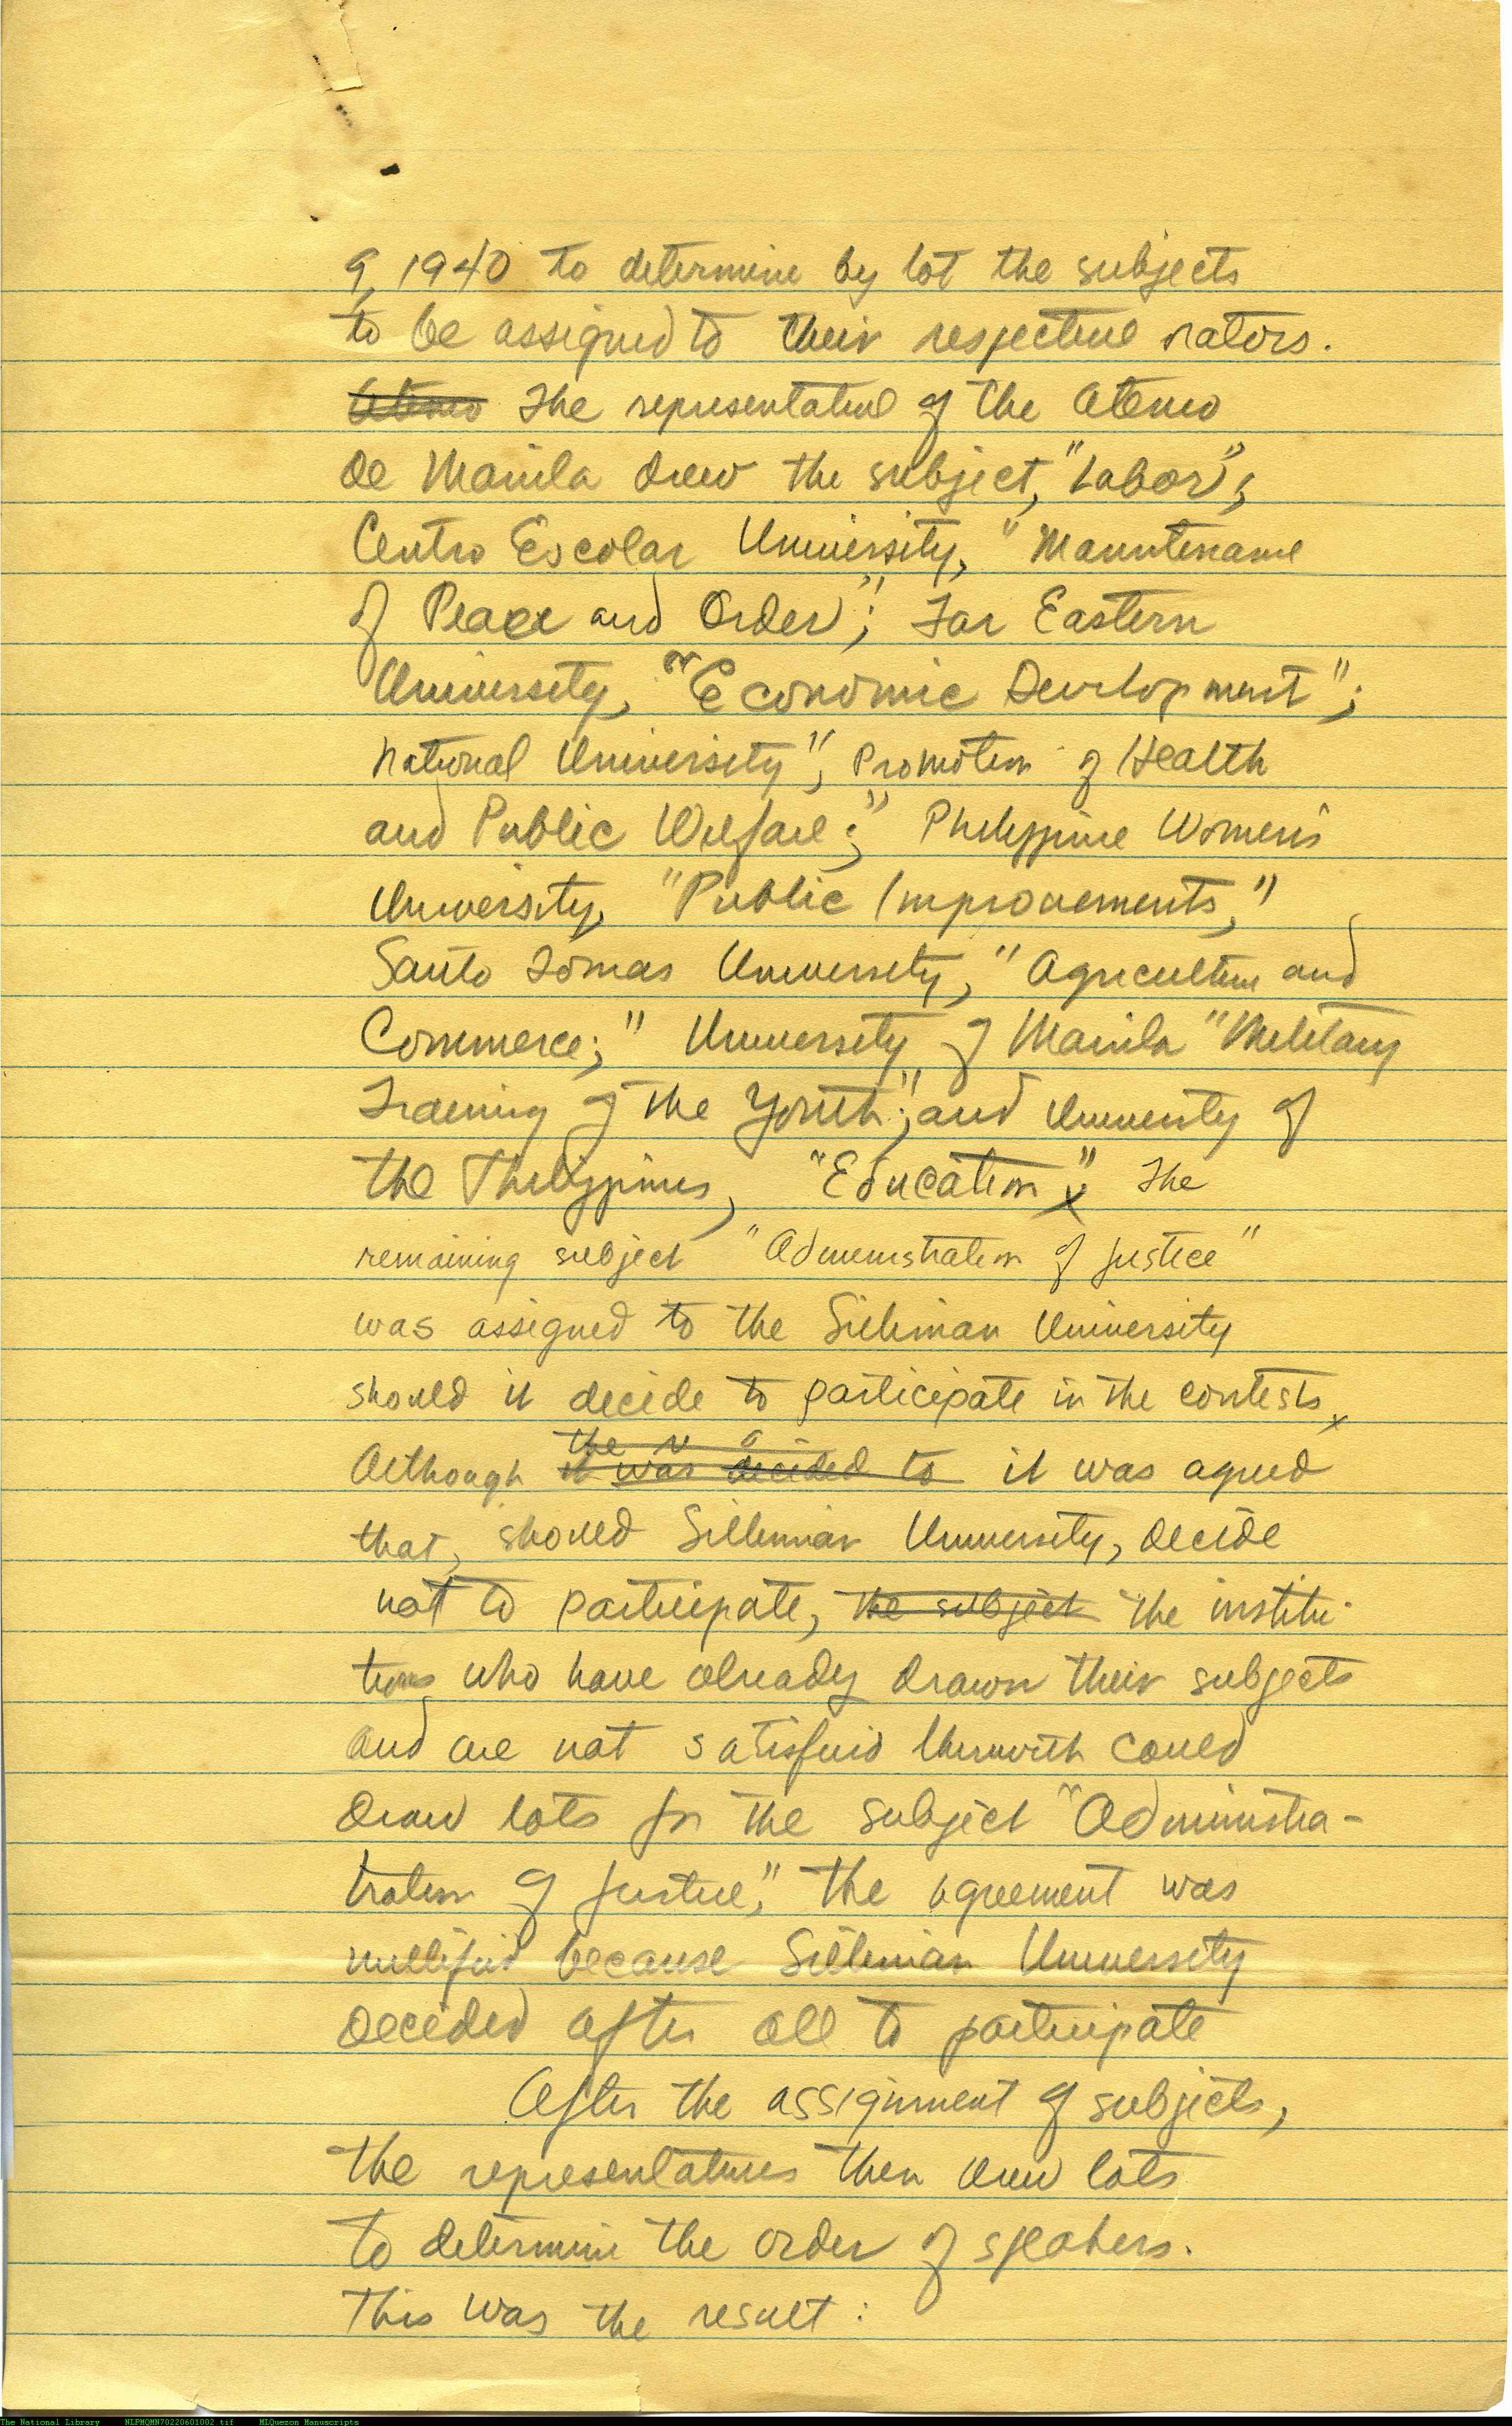 9, 1940 to determine by lot the subjects
to be assigned to their respective rators.
Ateneo The representative of the Ateneo
de Manila drew the subject, "Labor";
Centro Escolar University, "Maintenance
of Peace and Order"; Far Eastern
University, "Economic Development";
National University", Promotion of Health
and Public Welfare;" Philippine Women's
University, "Public Improvements,"
Santo Tomas University, "Agriculture and
Commerce;" University of Manila "Military
Training of the Youth"; and University of
the Philippines, "Education". The
remaining subject "Administration of Justice"
was assigned to the Silliman University
should it decide to participate in the contests
Although it was decided to it was agreed
that, should Silliman University, decide
not to participate, the subject the institu-
tions who have already drawn their subjects
and are not satisfied therewith could
draw lots for the subject "Administra-
tration of Justice," the agreement was
nullified because Silliman University
decided after all to participate
After the assignment of subjects,
the representatives then drew lots
to determine the order of speakers.
This was the result:
The National Library NLPMQMN70220601002.tif MLQuezon Manuscripts